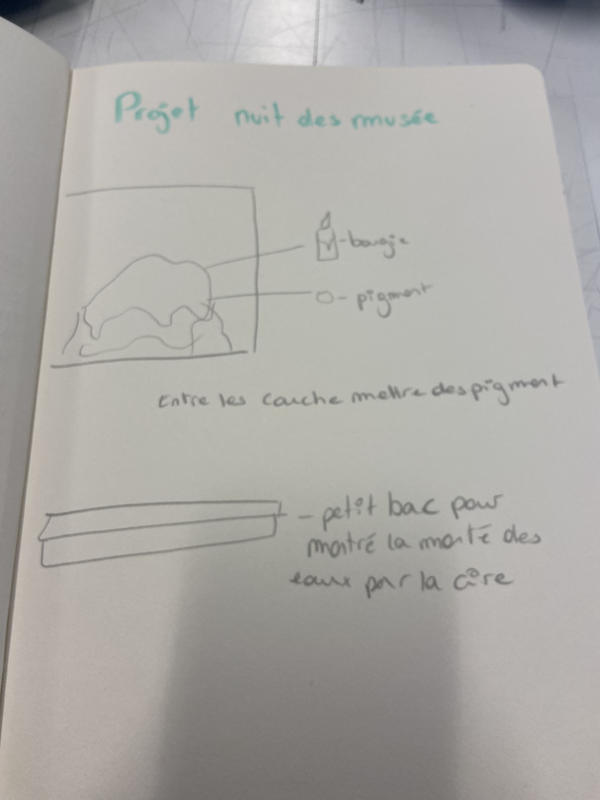 Projet nuit des musée
- bougie
- pigment
Entre les couche mettre des pigment
- petit bac pour
montré la monté des
eaux par la cire